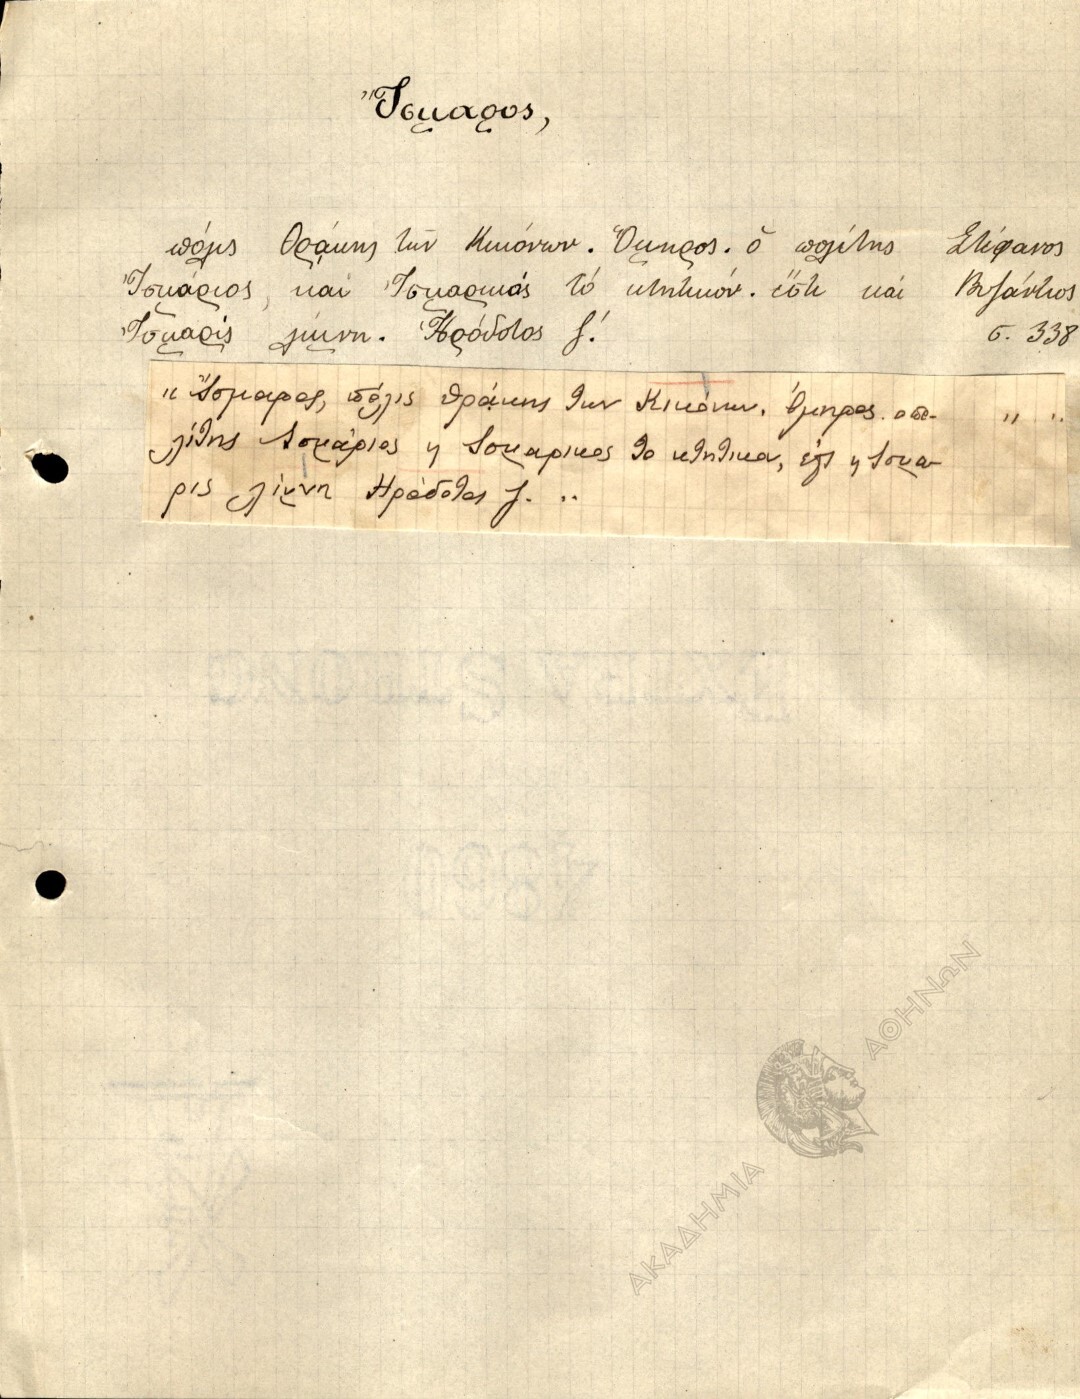 Ἴσμαρος,
πόλις Θρᾴκης τῶν Κικόνων. Ὅμηρος. ὁ πολίτης Στέφανος
Ἰσμάριος, καὶ Ἰσμαρικός τό κτητικόν. ἔστι καὶ Βυζάντιος
Ἰσμαρὶς λίμνη. Ἡρόδοτος ζ! σ. 338
"Ἴσμαρος, πόλις Θράκης των Κικόνων. Όμηρος. ο πο- " "
λίτης Ισμάριος η Ισμαρικος το κτητικα, έστι η Ισμα-
ρις λίμνη Ηρόδοτος ζ. "
ΑΚΑΔΗΜΙΑ ΑΘΗΝΩΝ